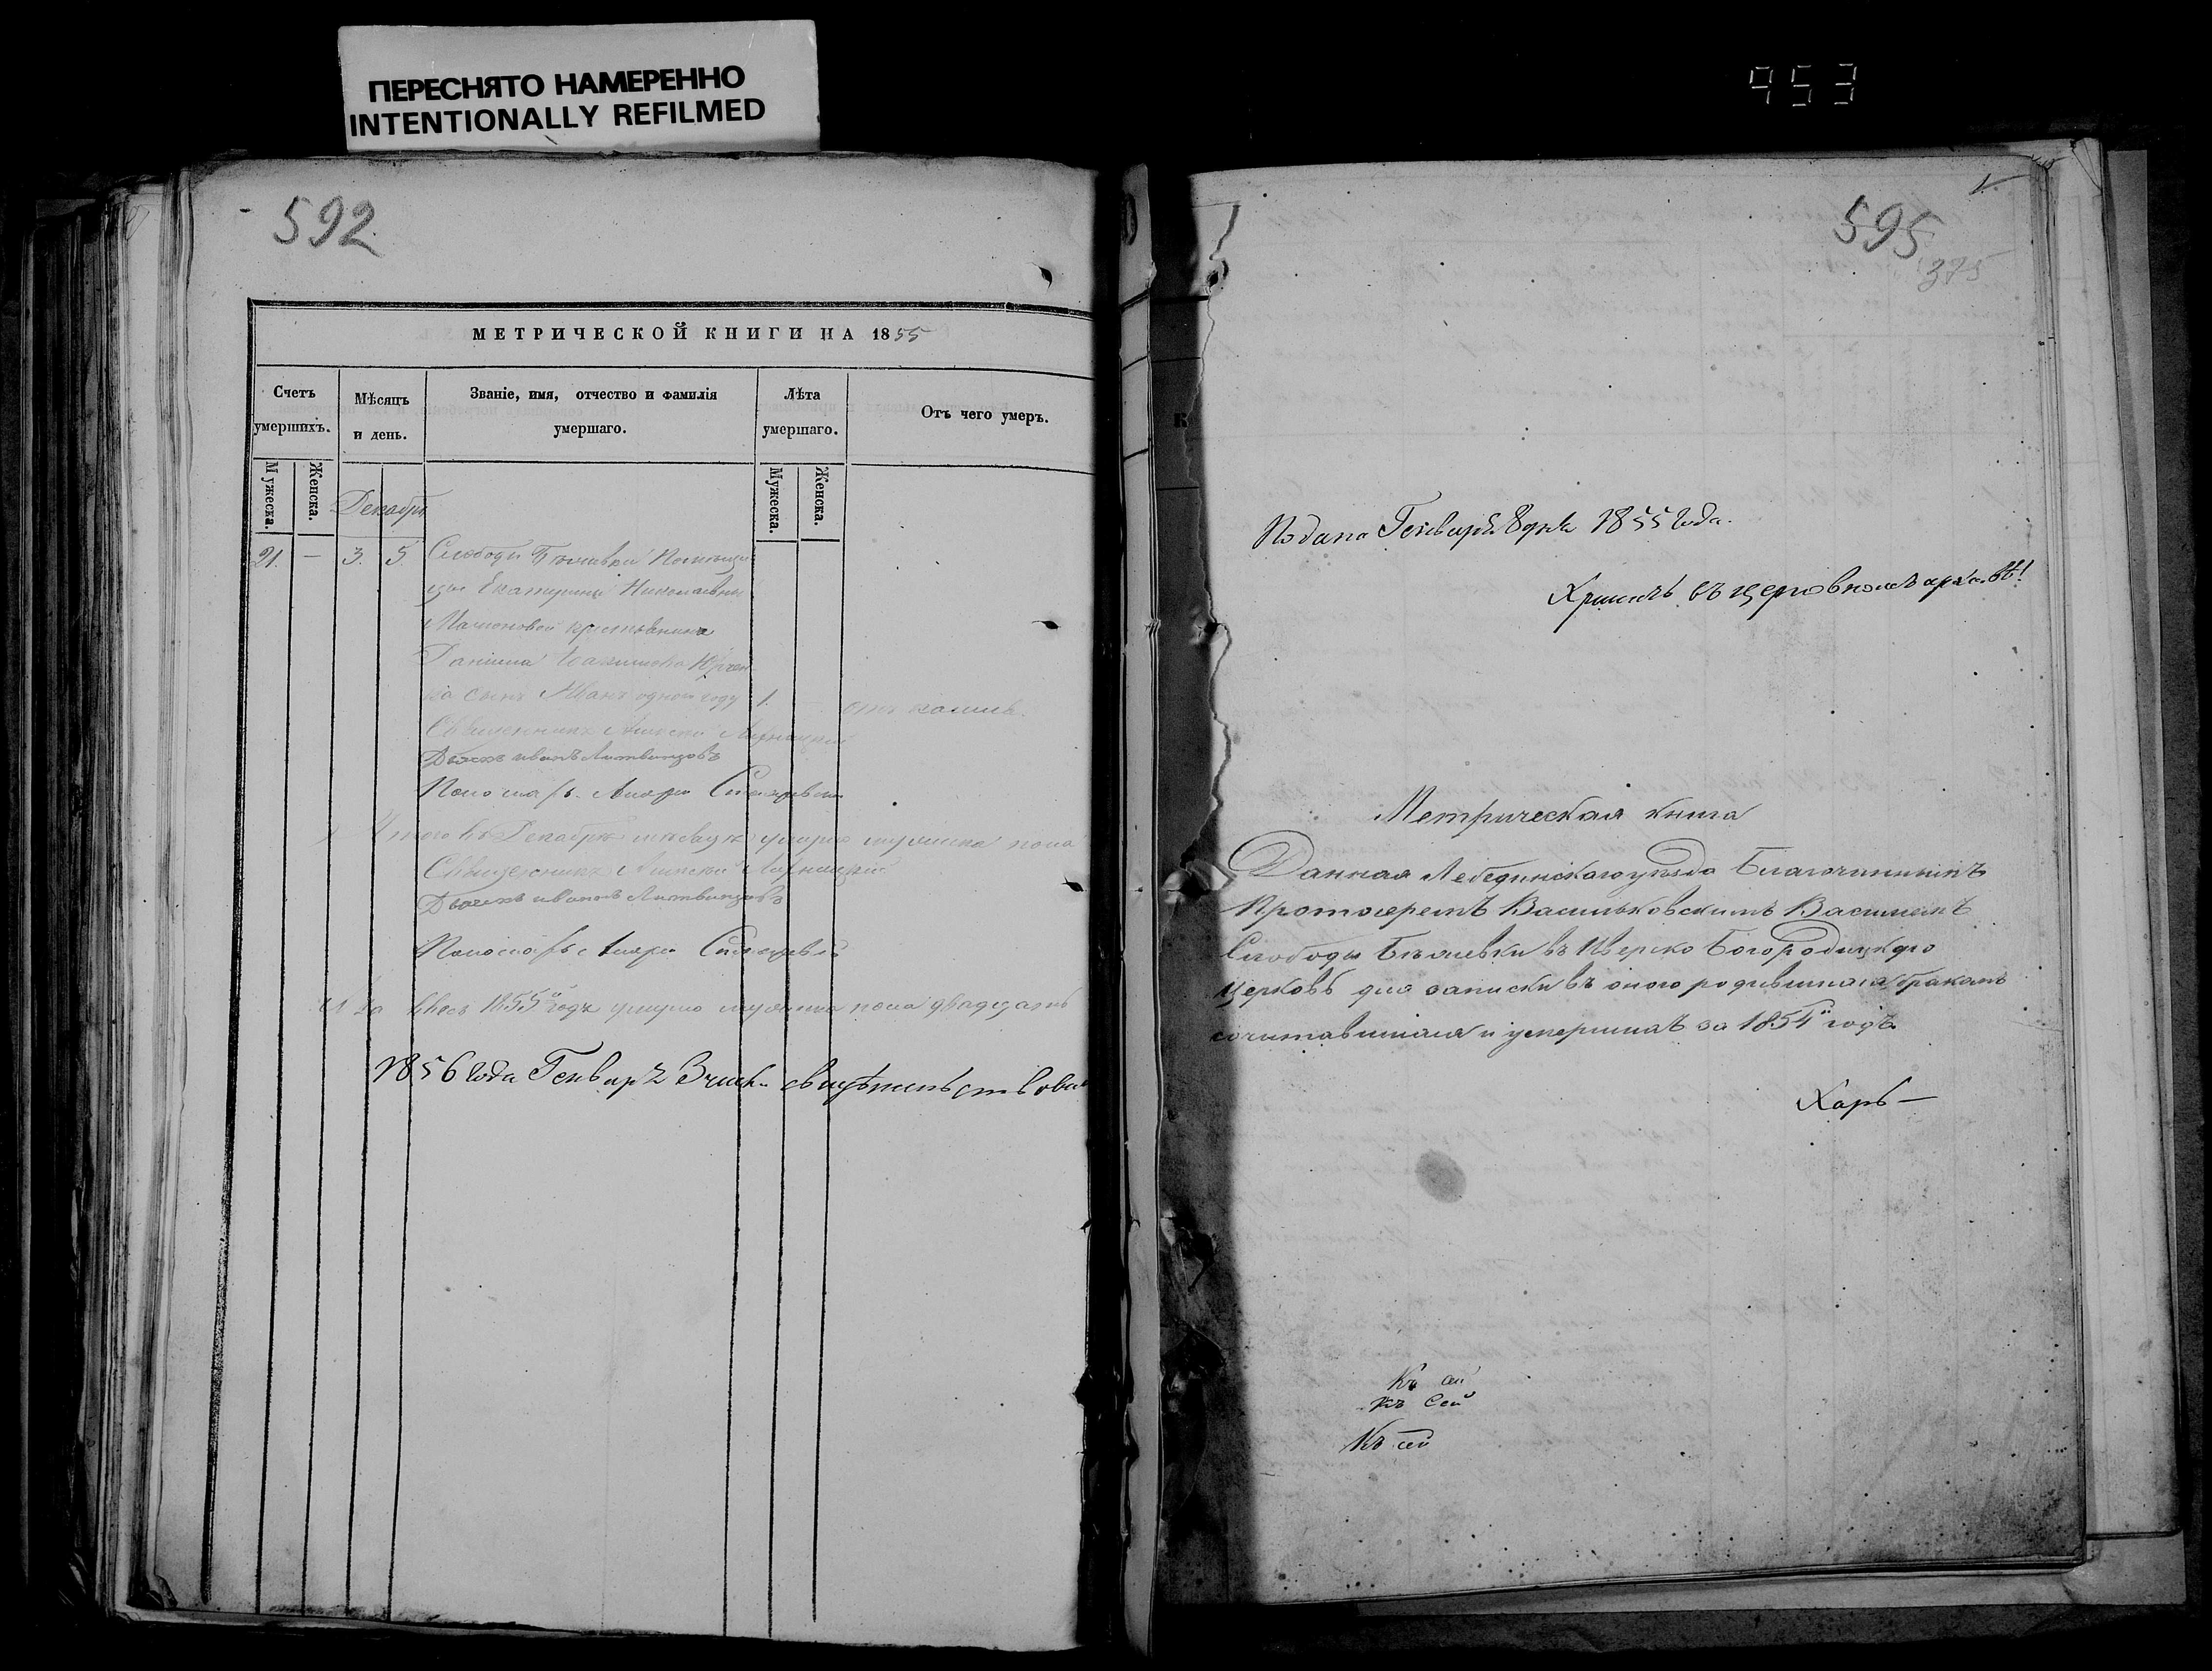 ПЕРЕСНЯТО НАМЕРЕННО
INTENTIONALLY REFILMED
953
592
МЕТРИЧЕСКОЙ КНИГИ НА 1855
Счетъ умершихъ.
Мѣсяцъ и день.
Званіе, имя, отчество и фамилія умершаго.
Лѣта умершаго.
Отъ чего умеръ.
Мужеска.
Женска.
Мужеска.
Женска.
Декабрь
21. — 3. 5. Слободы Бѣлевки Помѣщи
цы Екатерины Николаевны
крестьянина
Даніила Іоакимова
сынъ Иванъ одного году 1. отъ кашля.
Священникъ Алексей
Дьячекъ Иванъ Литвинцовъ
Пономарь Андрей
Итого въ Декабрѣ месяцѣ умерло мужеска пола
Священникъ Алексей
Дьячекъ Иванъ Литвинцовъ
Пономарь Андрей
И за весь 1855й годъ умерло мужеска пола двадцать
1856 года Генваря 3 числа свидѣтельствова
595
375
Подана Генваря 8 дня 1855 года.
Хранить въ церковномъ архивѣ!
Метрическая книга
Данная Лебединскаго уѣзда Благочиннымъ
Протоіереемъ Васильковскимъ Василіемъ
Слободы Бѣлевки въ Богородицкую
Церковь для записки въ оною родившихся бракомъ
сочитавшихся и умершихъ за 1854й годъ
Харь—
Къ сей
Къ Сей
Къ сей